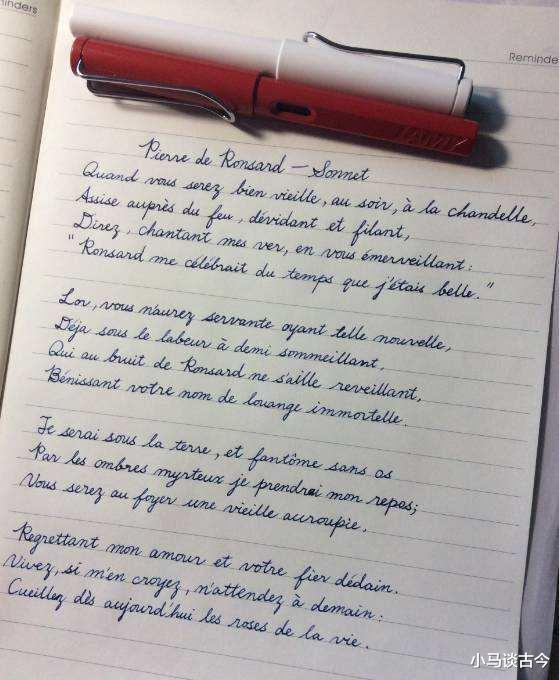 inders
Reminde
LAMY
Pierre de Ronsard — Sonnet
Quand vous serez bien vieille, au soir, à la chandelle,
Assise auprès du feu, dévidant et filant,
Direz, chantant mes ver, en vous émerveillant:
"Ronsard me célébrait du temps que j'étais belle."
Lor, vous n'aurez servante oyant telle nouvelle,
Déja sous le labeur à demi sommeillant,
Qui au bruit de Ronsard ne s'aille reveillant,
Bénissant votre nom de louange immortelle.
Je serai sous la terre, et fantôme sans os
Par les ombres myrteux je prendrai mon repos;
Vous serez au foyer une vieille accroupie.
Regrettant mon amour et votre fier dédain.
Vivez, si m'en croyez, n'attendez à demain:
Cueillez dès aujourd'hui les roses de la vie.
小马谈古今